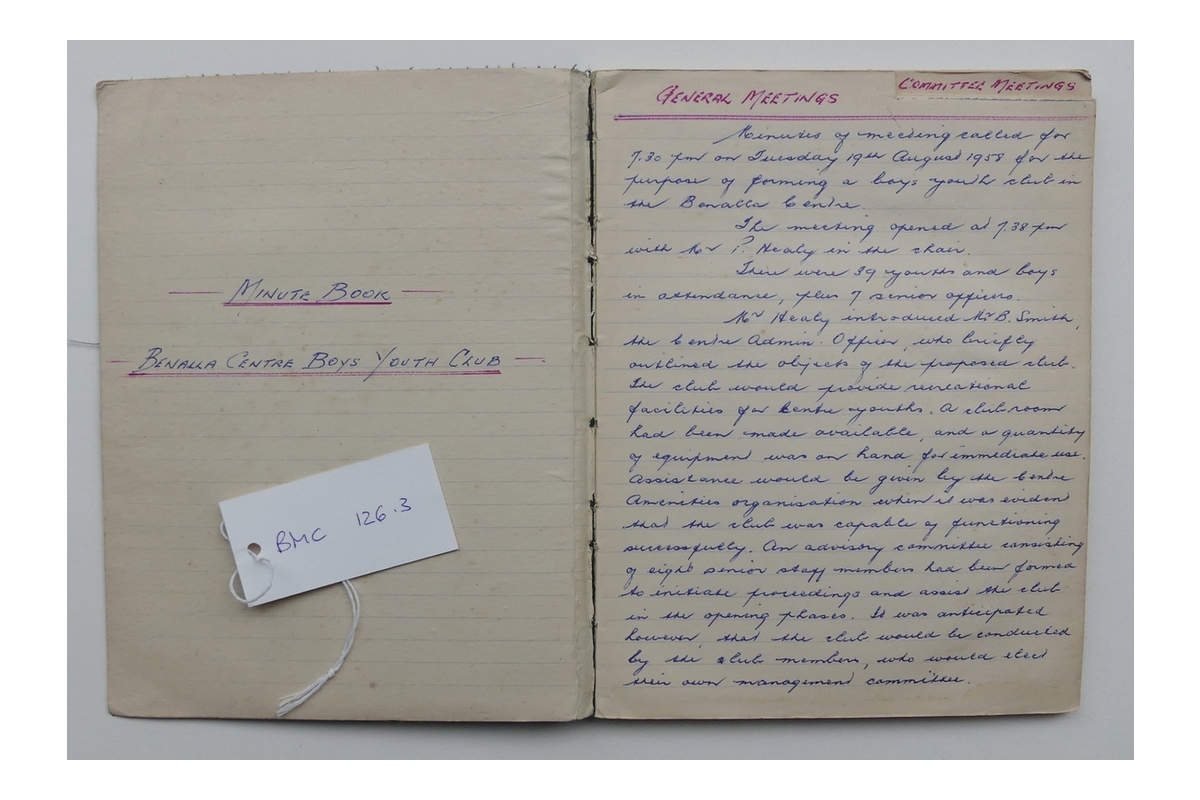 MINUTE BOOK
BENALLA CENTRE BOYS YOUTH CLUB
BMC 126.3
GENERAL MEETINGS
COMMITTEE MEETINGS
Minutes of meeting called for
7.30 pm on Tuesday 19th August 1958 for the
purpose of forming a boys youth club in
the Benalla Centre.
The meeting opened at 7.38 pm
with Mr P. Healy in the chair.
There were 39 youths and boys
in attendance, plus 7 senior officers.
Mr Healy introduced Mr B. Smith,
the Centre Admin. Officer, who briefly
outlined the objects of the proposed club.
The club would provide recreational
facilities for Centre youths. A club room
had been made available, and a quantity
of equipment was on hand for immediate use.
Assistance would be given by the Centre
Amenities organisation when it was evident
that the club was capable of functioning
successfully. An advisory committee consisting
of eight senior staff members had been formed
to initiate proceedings and assist the club
in the opening phases. It was anticipated
however, that the club would be conducted
by the club members, who would elect
their own management committee.